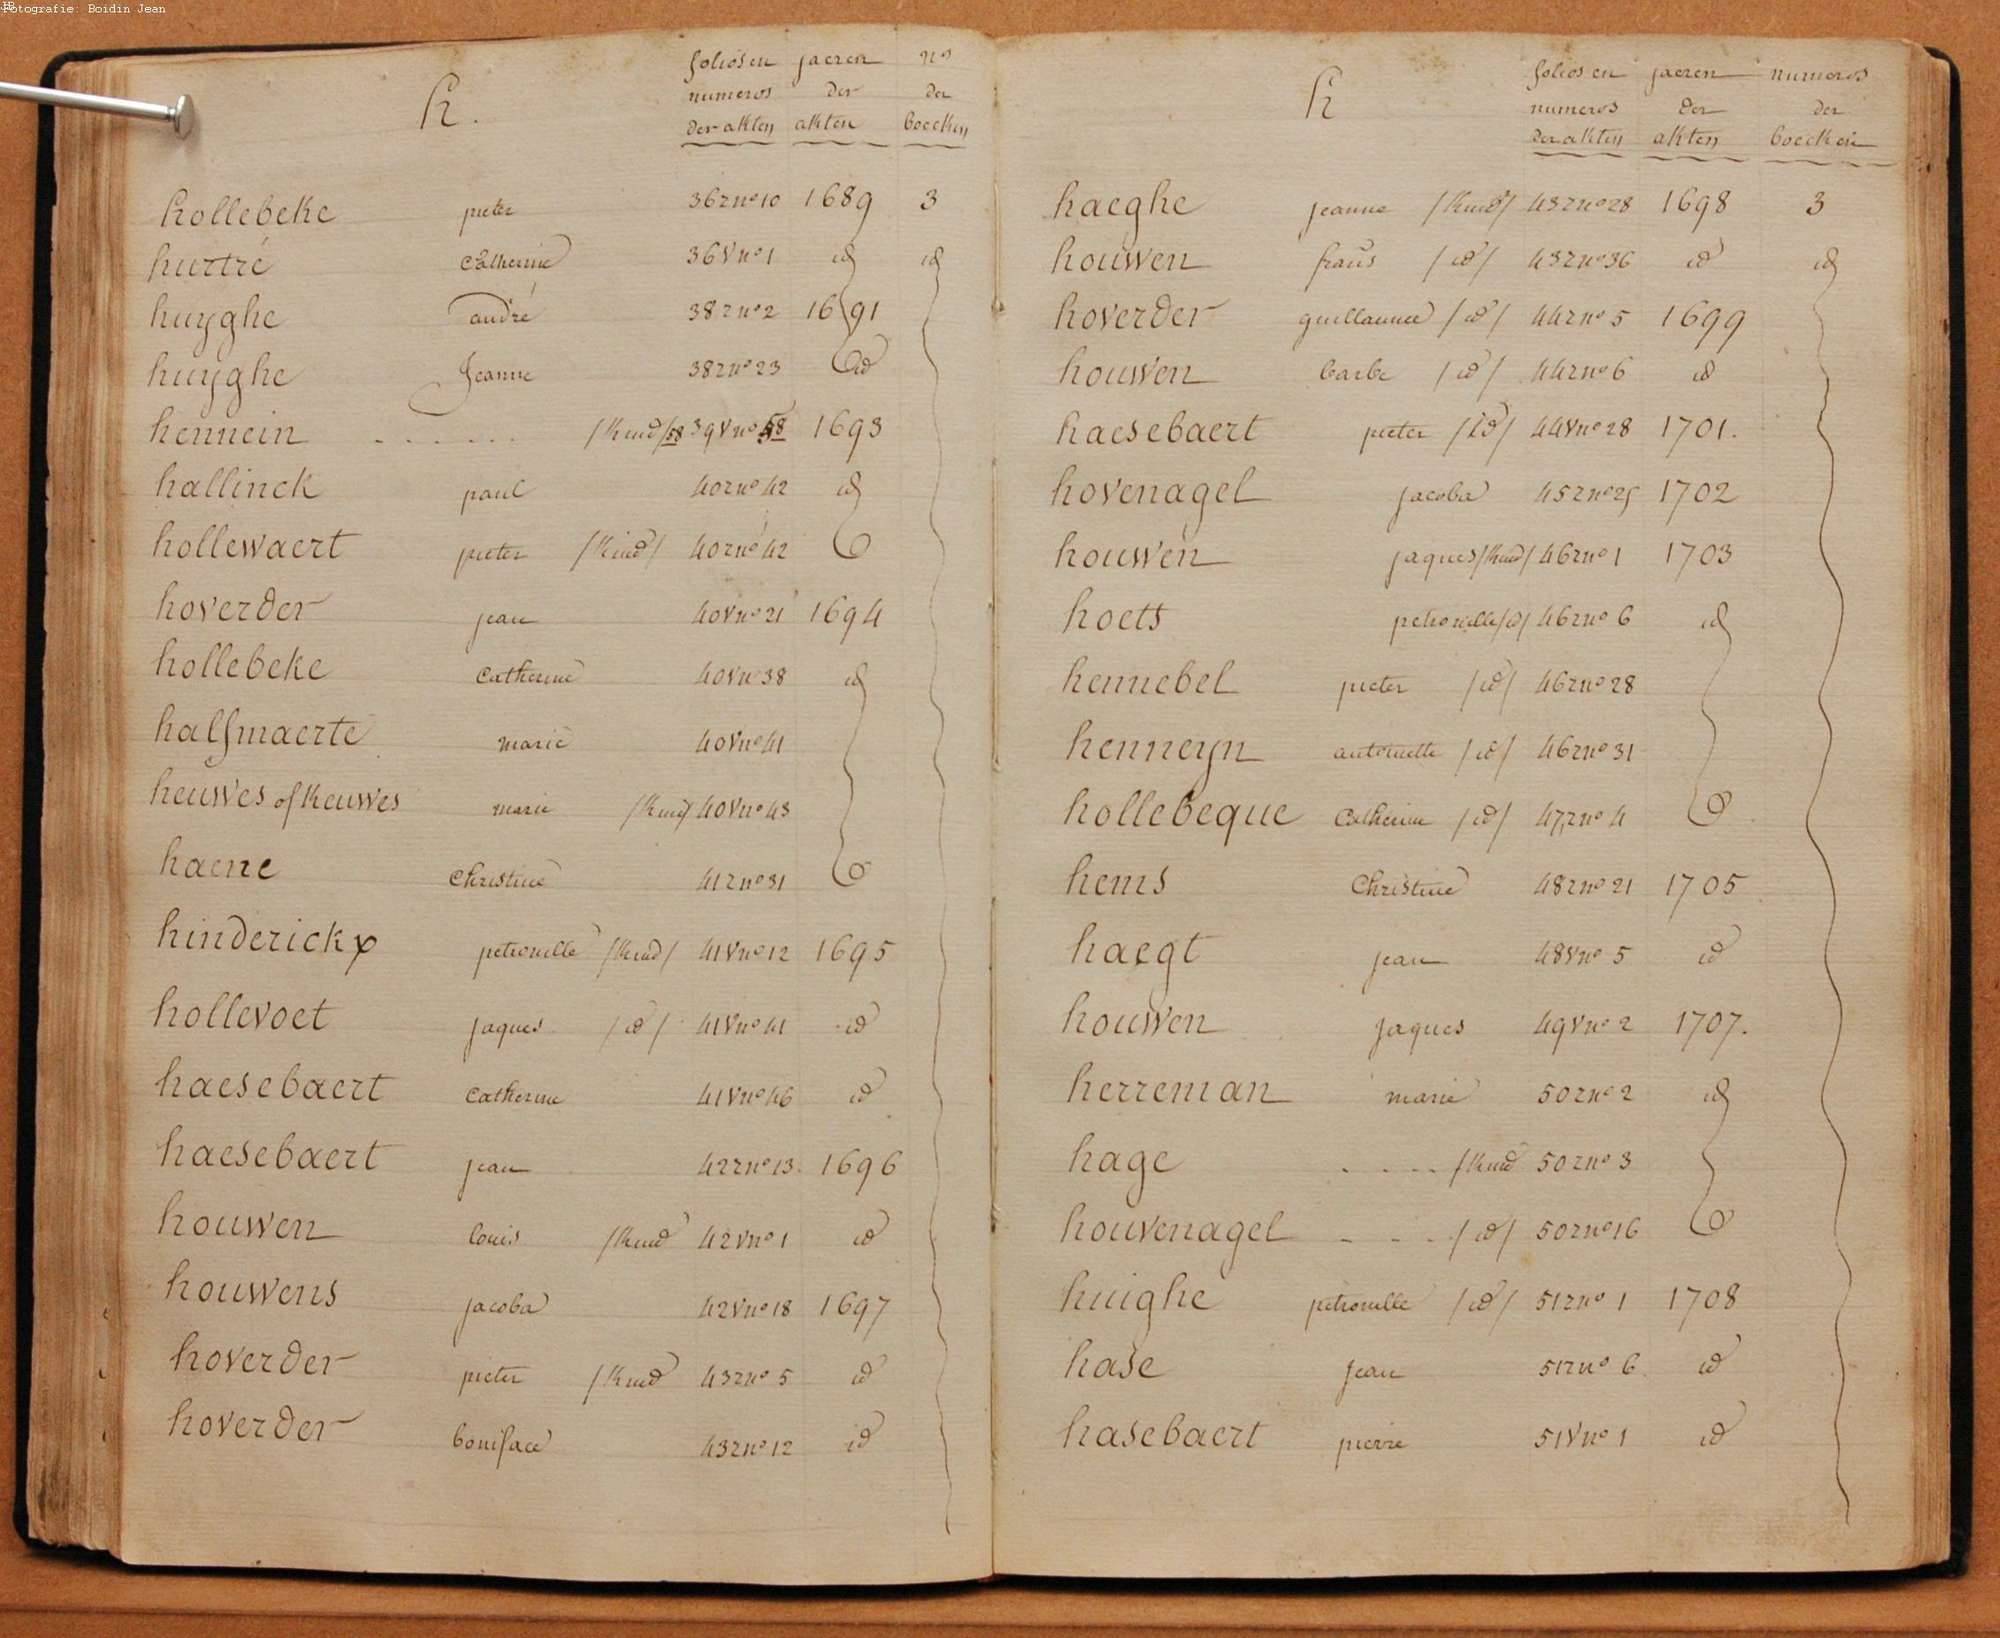 Fotografie: Boidin Jean
h.
folios en jaeren nos
numeros der der
der akten akten boecken
hollebeke pieter 36 r no 10 1689 3
hurtré Catherine 36 v no 1 id id
huyghe andré 38 r no 2 1691
huyghe Jeanne 38 r no 23 id
hennein . . . . . . /kind/ 58 39 v no 58 1693
hallinck paul 40 r no 42 id
hollewaert pieter /kind/ 40 r no 42
hoverder jean 40 v no 21 1694
hollebeke Catherine 40 v no 38 id
halfmaerte marie 40 v no 41
heuwes of keuwes marie /kind/ 40 v no 43
haene Christine 41 r no 31
hinderickx petronille /kind/ 41 v no 12 1695
hollevoet jaques /id/ 41 v no 41 id
haesebaert Catherine 41 v no 46 id
haesebaert jean 42 r no 13 1696
houwen louis /kind 42 v no 1 id
houwens jacoba 42 v no 18 1697
hoverder pieter /kind 43 r no 5 id
hoverder boniface 43 r no 12 id
h
folios en jaeren numeros
numeros der der
der akten akten boecken
haeghe jeanne /kind/ 43 r no 28 1698 3
houwen frans /id/ 43 r no 36 id id
hoverder guillaume /id/ 44 r no 5 1699
houwen barbe /id/ 44 r no 6 id
haesebaert pieter /id/ 44 v no 28 1701.
hovenagel jacoba 45 r no 25 1702
houwen jaques /kind/ 46 r no 1 1703
hoets petronille /id/ 46 r no 6 id
hennebel pieter /id/ 46 r no 28
henneyn antoinette /id/ 46 r no 31
hollebeque Catherine /id/ 47 r no 4
hems Christine 48 r no 21 1705
haegt jean 48 v no 5 id
houwen Jaques 49 v no 2 1707.
herreman marie 50 r no 2 id
hage . . . . /kind 50 r no 3
houvenagel . . . /id/ 50 r no 16
huighe petronille /id/ 51 r no 1 1708
hase Jean 51 r no 6 id
hasebaert pierre 51 v no 1 id